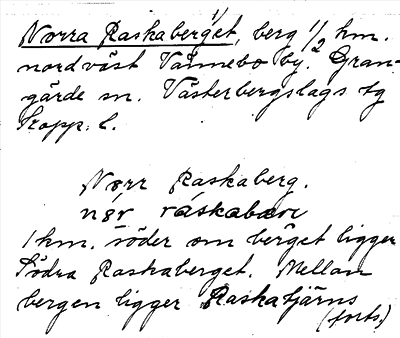 Norra Raskaberget, berg 1/2 km.
nordväst Vännebo by. Gran-
gärde sn. Västerbergslags tg
Kopp. l.
Norr Raskaberg.
nǿr ráskabær
1 km. söder om berget ligger
Södra Raskaberget. Mellan
bergen ligger Raskatjärns
(forts.)